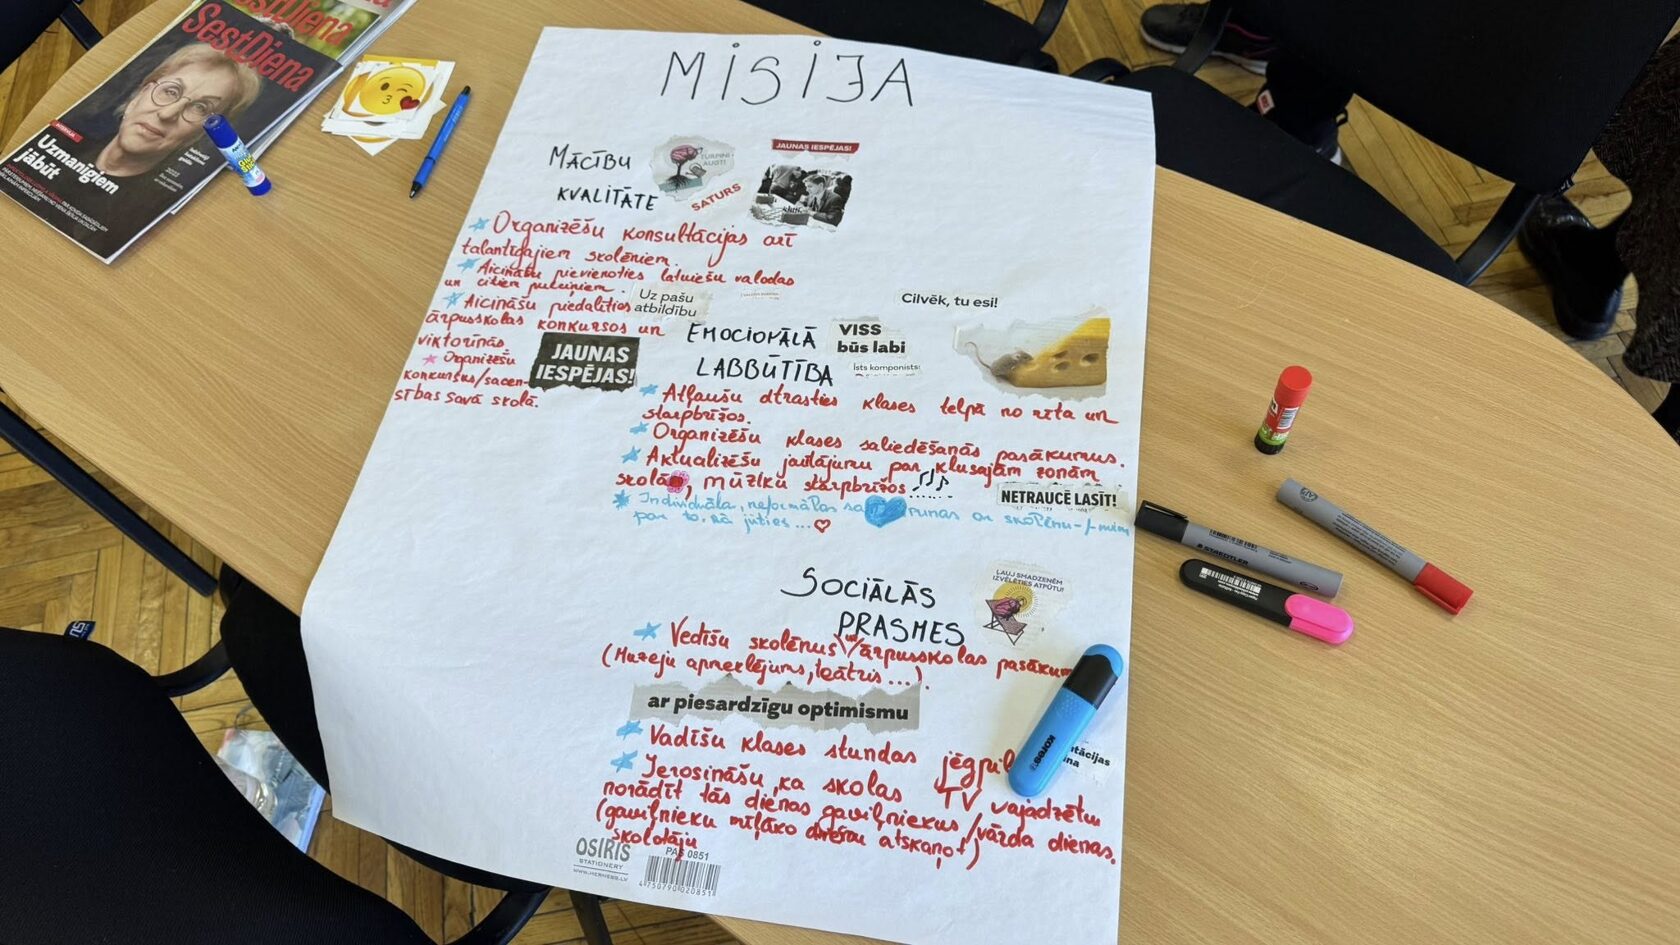 SestDiena
SestDiena
Uzmanīgiem
jābūt
MISIJA
MĀCĪBU
KVALITĀTE
TURPINI
AUGT!
SATURS
JAUNAS IESPĒJAS!
Organizēšu konsultācijas arī
talantīgajiem skolēniem.
Aicināšu pievienoties latviešu valodas
un citiem pulciņiem.
Aicināšu piedalīties
ārpusskolas konkursos un
viktorīnās
Organizēšu
konkursus/sacen-
sības savā skolā.
Uz pašu
atbildību
JAUNAS
IESPĒJAS!
Cilvēk, tu esi!
EMOCIONĀLĀ
LABBŪTĪBA
VISS
būs labi
Īsts komponists:
Atļaušu atrasties klases telpā no rīta un
starpbrīžos.
Organizēšu klases saliedēšanās pasākumus.
Aktualizēšu jautājumu par klusajām zonām
skolā, mūziku starpbrīžos
NETRAUCĒ LASĪT!
Individuāla, neformālas sarunas ar skolēnu
par to, kā jūties...
SOCIĀLĀS
PRASMES
ĻAUJ SMADZENĒM
IZVĒLĒTIES ATPŪTU!
Vedīšu skolēnus uz ārpusskolas pasākum
(Muzeju apmeklējums, teātris...).
ar piesardzīgu optimismu
Vadīšu klases stundas jēgpil
Ierosināšu, ka skolas TV vajadzētu
norādīt tās dienas gaviļniekus/vārda dienas.
(gaviļnieku mīļāko dziesmu atskaņot)
skolotāju
OSIRIS
STATIONERY
WWW.HERMESS.LV
PAS 0851
4750790020851
kores
STAEDTLER